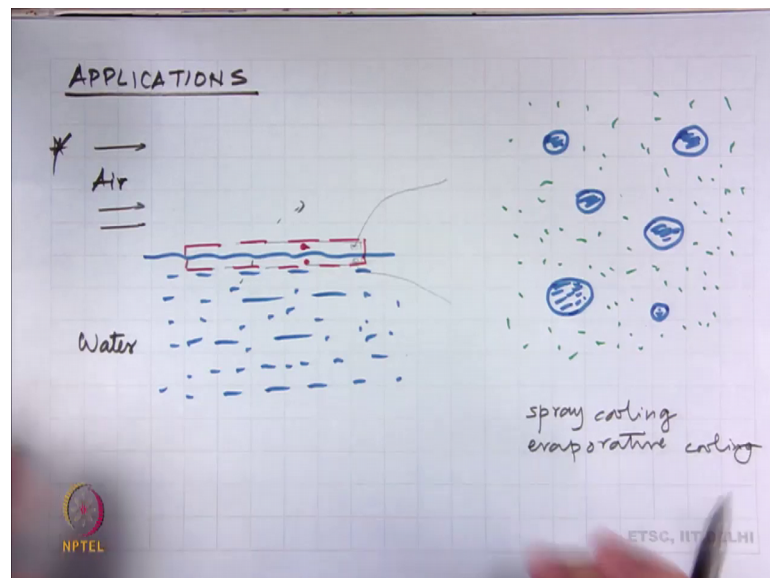 APPLICATIONS
Air
Water
spray cooling
evaporative cooling
NPTEL
ETSC, IIT DELHI